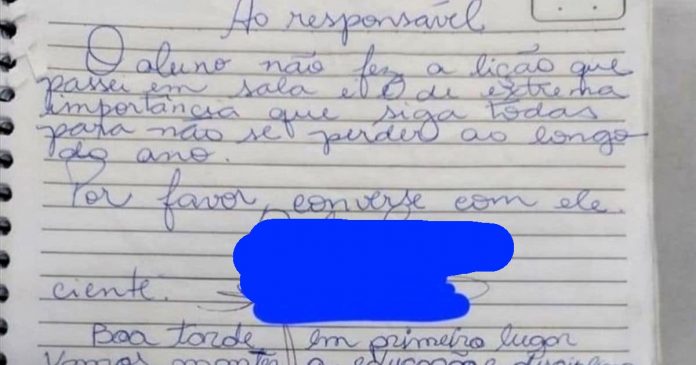 Ao responsável
O aluno não fez a lição que
passei em sala e é de extrema
importância que siga todas
para não se perder ao longo
do ano.
Por favor, converse com ele.
ciente:
Boa tarde, em primeiro lugar
Vamos manter a educação e